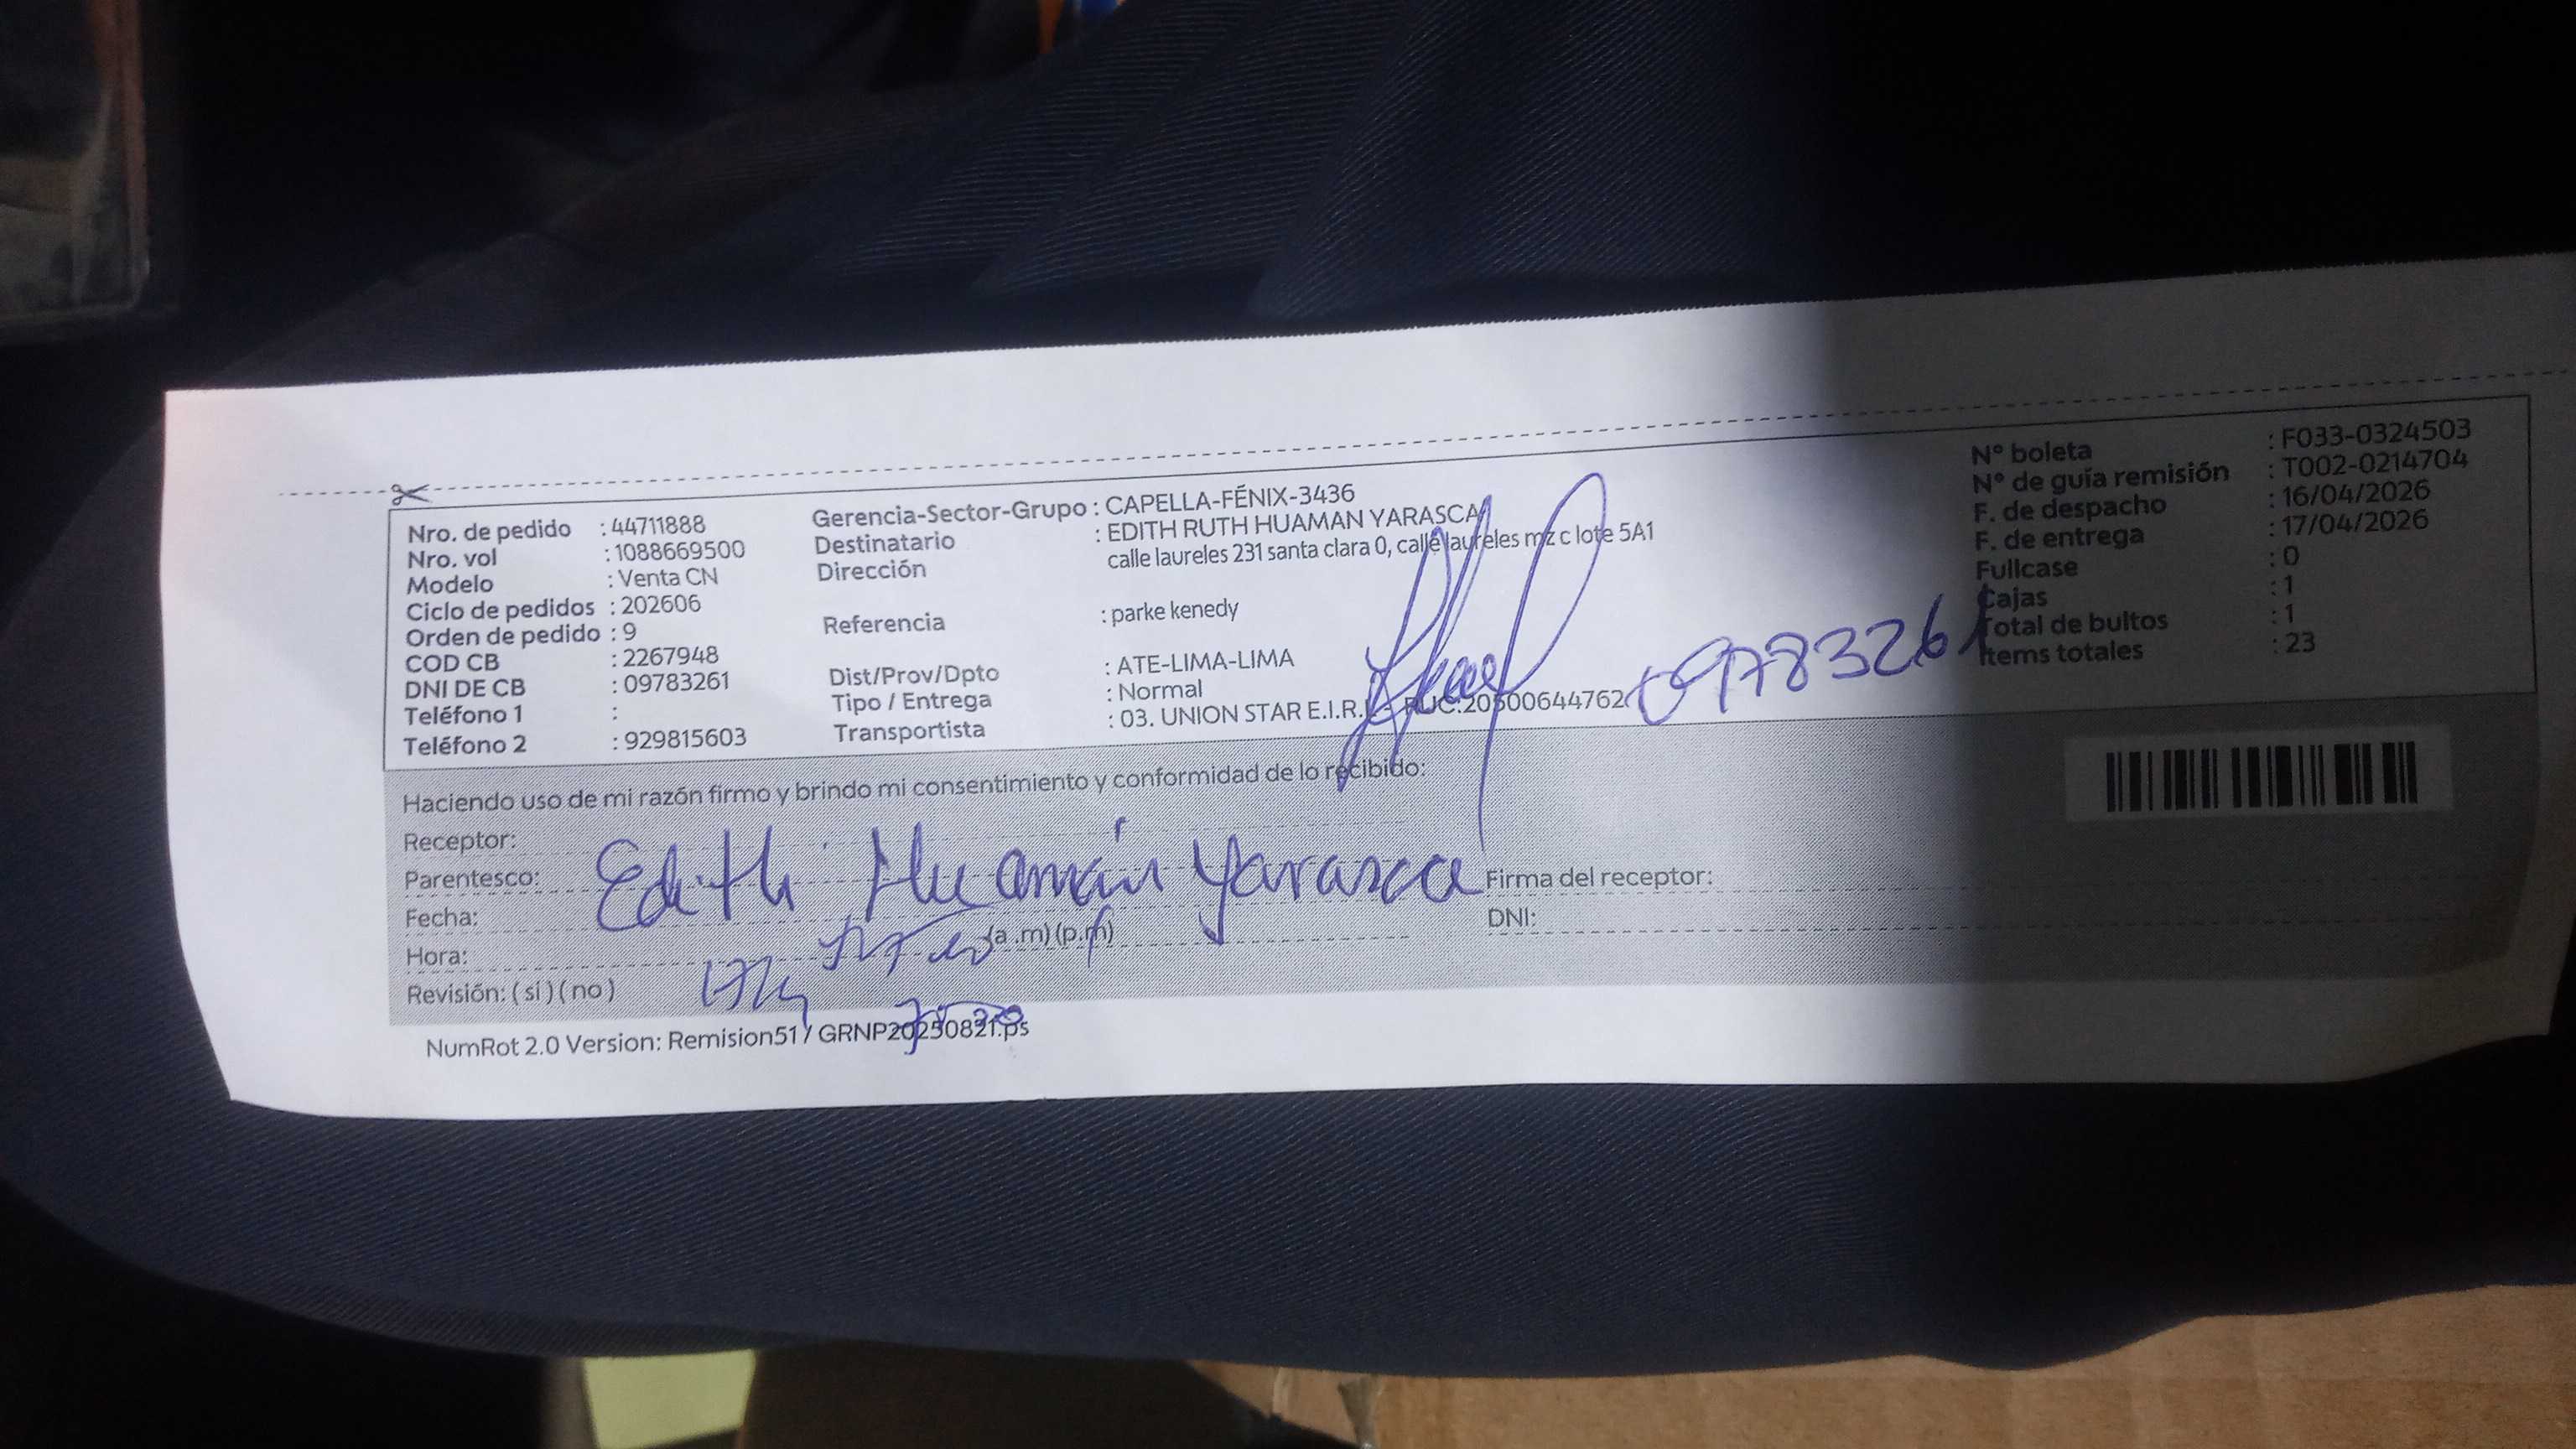 Nro. de pedido : 44711888
Nro. vol : 1088669500
Modelo : Venta CN
Ciclo de pedidos : 202606
Orden de pedido : 9
COD CB : 2267948
DNI DE CB : 09783261
Teléfono 1 :
Teléfono 2 : 929815603
Gerencia-Sector-Grupo : CAPELLA-FÉNIX-3436
Destinatario : EDITH RUTH HUAMAN YARASCA
Dirección calle laureles 231 santa clara 0, calle laureles mz c lote 5A1
Referencia : parke kenedy
Dist/Prov/Dpto : ATE-LIMA-LIMA
Tipo / Entrega : Normal
Transportista : 03. UNION STAR E.I.R.L - RUC:20500644762
09783261
N° boleta : F033-0324503
N° de guía remisión : T002-0214704
F. de despacho : 16/04/2026
F. de entrega : 17/04/2026
Fullcase : 0
Cajas : 1
Total de bultos : 1
Items totales : 23
Haciendo uso de mi razón firmo y brindo mi consentimiento y conformidad de lo recibido:
Receptor:
Parentesco: Edith Huamán Yarasca
Fecha:
Hora: (a .m) (p.m)
Revisión: ( si ) ( no )
Firma del receptor:
DNI:
NumRot 2.0 Version: Remision51 / GRNP20250821.ps